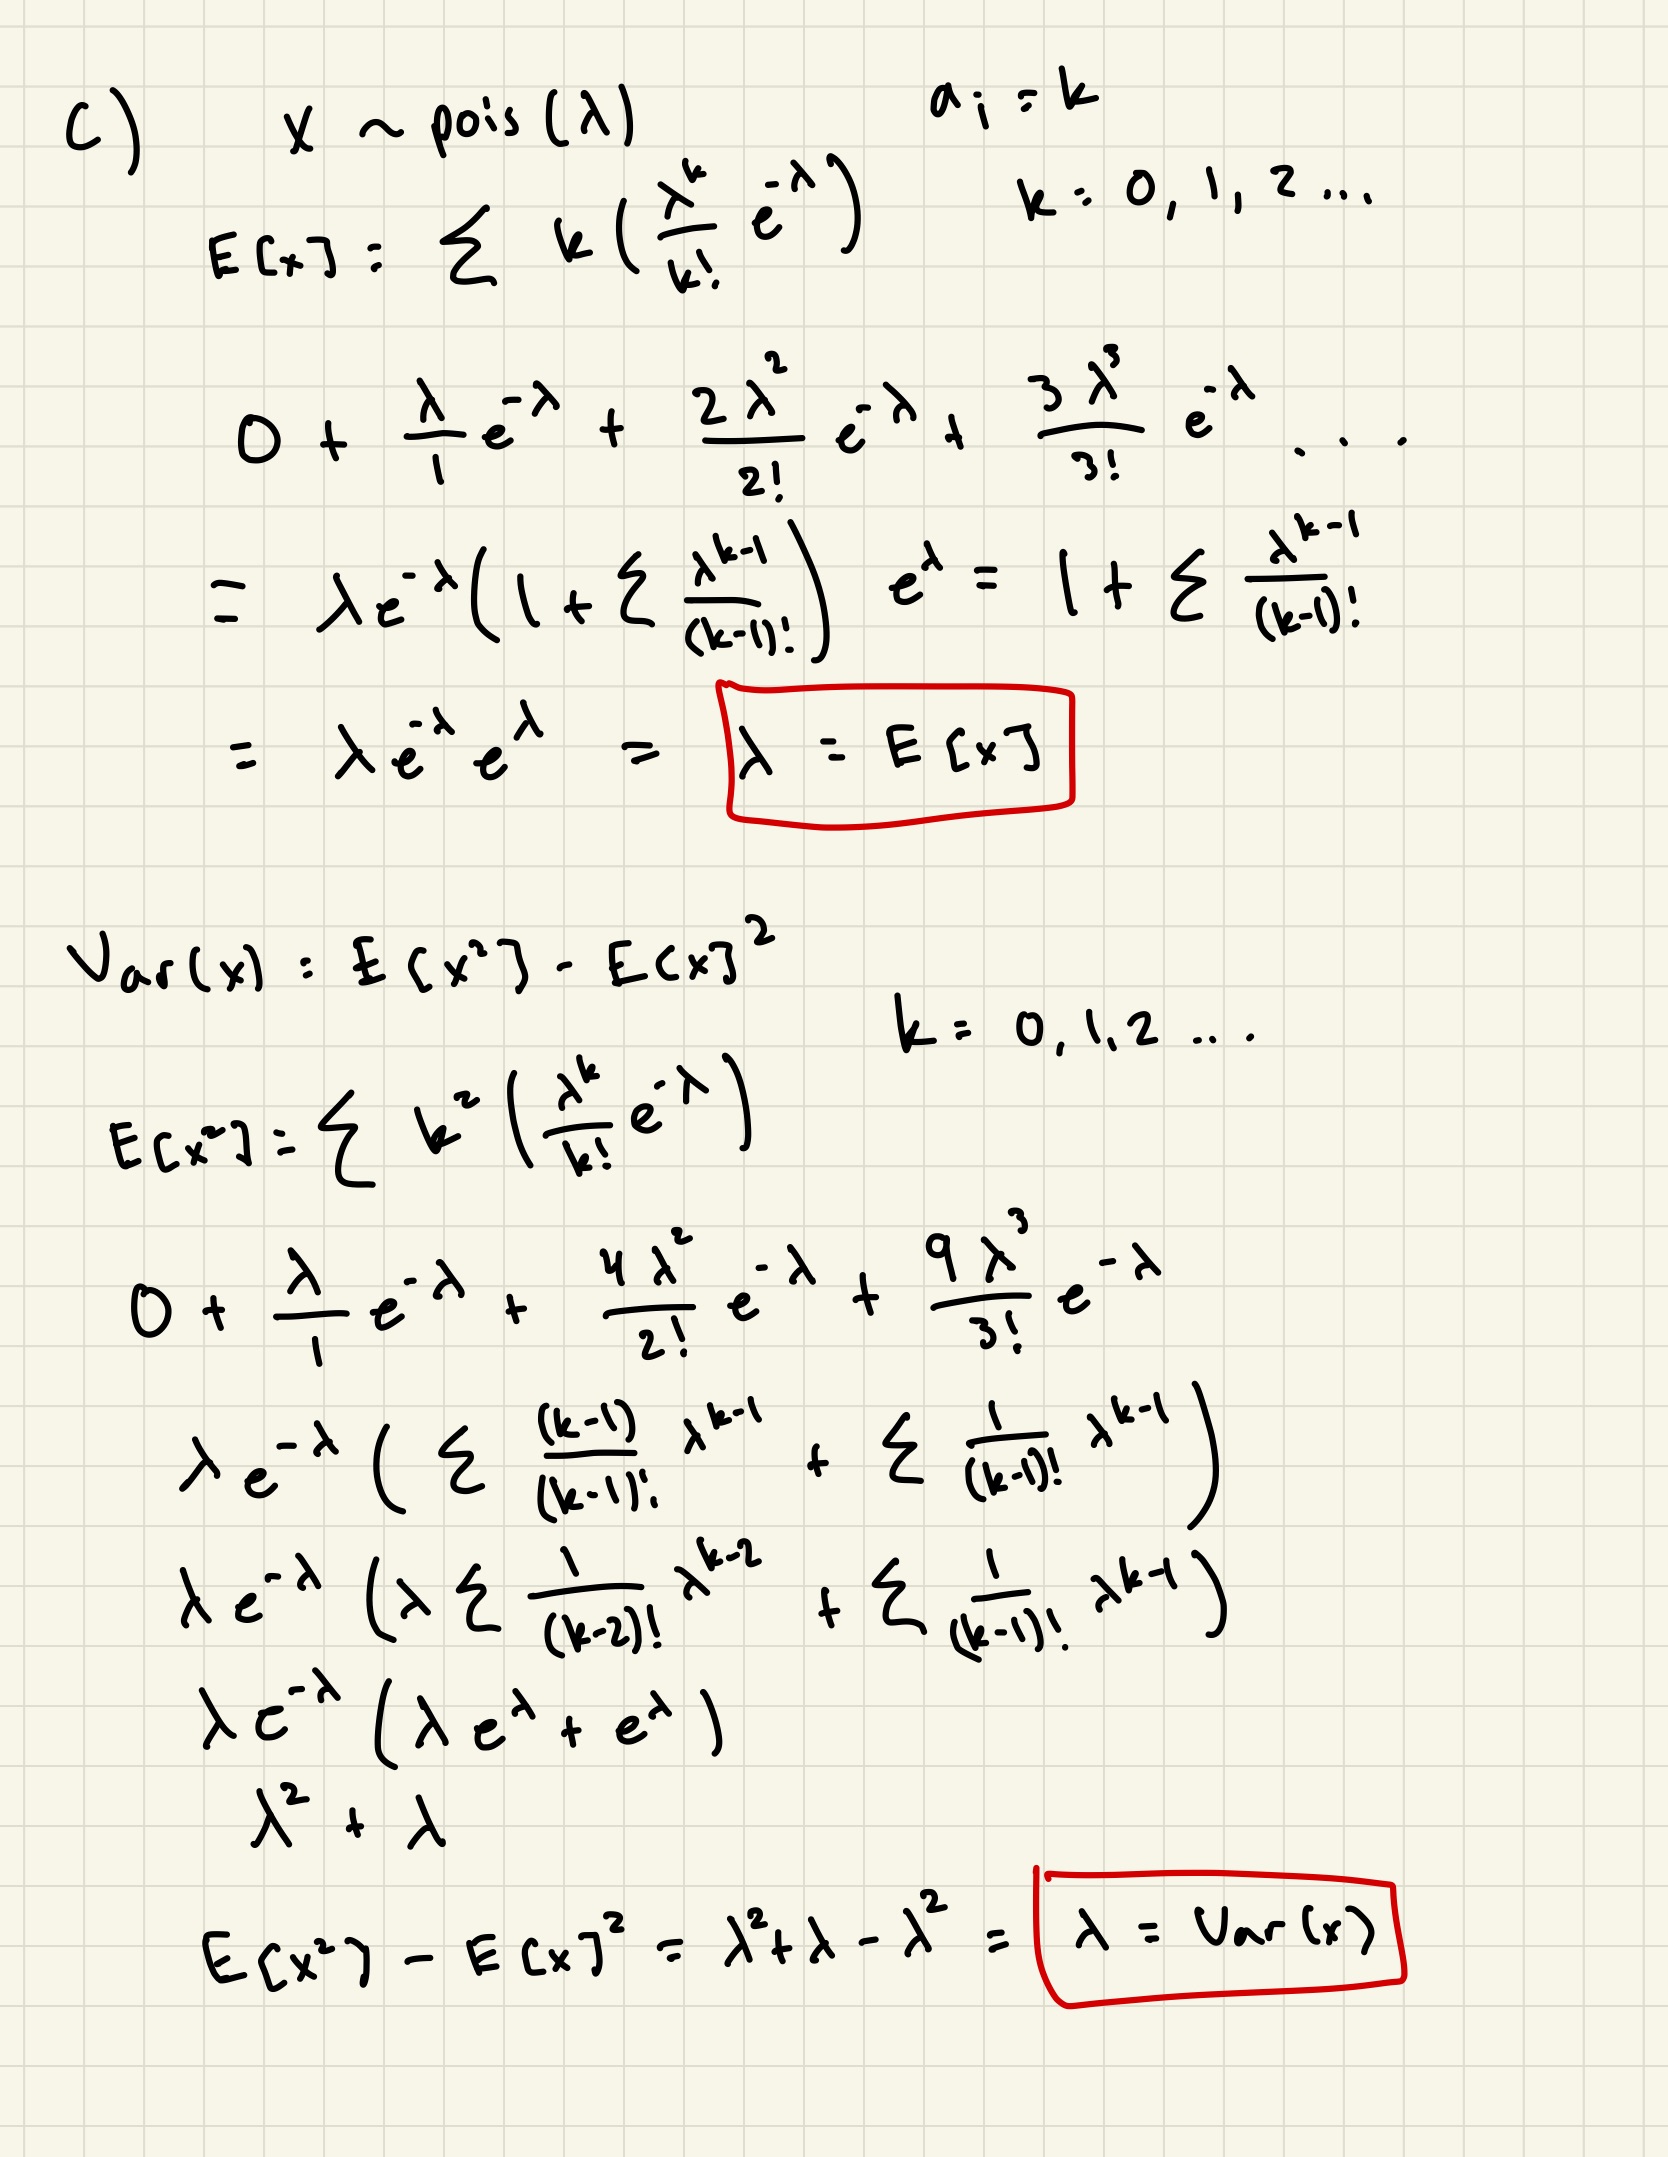 C) X ~ pois (λ) a_i = k
E[x] = Σ k (λ^k/k! e^-λ) k = 0, 1, 2 ...
0 + λ/1 e^-λ + 2λ^2/2! e^-λ + 3λ^3/3! e^-λ . . .
= λe^-λ (1 + Σ λ^(k-1)/(k-1)!) e^λ = 1 + Σ λ^(k-1)/(k-1)!
= λe^-λ e^λ = λ = E[x]
Var(x) = E[x^2] - E[x]^2
k = 0, 1, 2 ...
E[x^2] = Σ k^2 (λ^k/k! e^-λ)
0 + λ/1 e^-λ + 4λ^2/2! e^-λ + 9λ^3/3! e^-λ
λe^-λ (Σ (k-1)/(k-1)! λ^(k-1) + Σ 1/(k-1)! λ^(k-1))
λe^-λ (λ Σ 1/(k-2)! λ^(k-2) + Σ 1/(k-1)! λ^(k-1))
λe^-λ (λe^λ + e^λ)
λ^2 + λ
E[x^2] - E[x]^2 = λ^2 + λ - λ^2 = λ = Var(x)